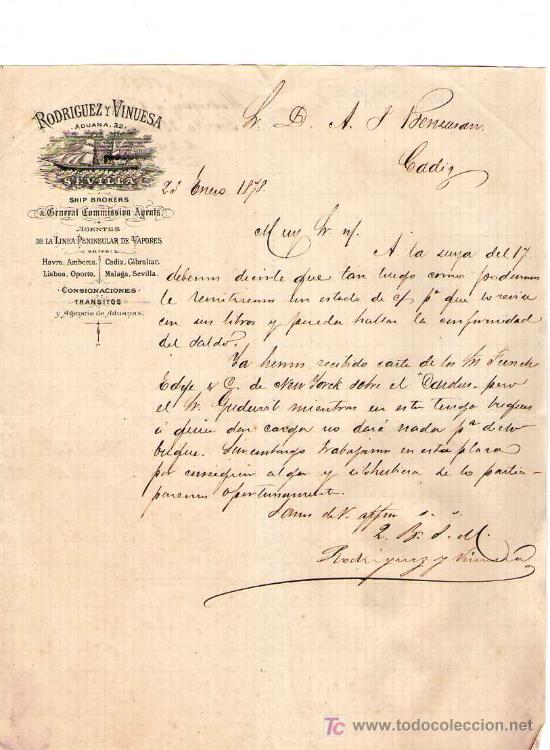 RODRIGUEZ Y VINUESA
ADUANA, 32
SEVILLA
SHIP BROKERS
& General Commission Agents.
AGENTES
DE LA LINEA PENINSULAR DE VAPORES
entre
Havre. Amberes. Cadiz. Gibraltar.
Lisboa, Oporto. Malaga, Sevilla.
CONSIGNACIONES
TRANSITOS
y Agencia de Aduanas.
Sr. D. A. J Bensusan
Cadiz
23 Enero 1878.
Muy Sr. n/.
A la suya del 17
debemos decirle que tan luego como podamos
le remitiremos un estado de c/ pª que lo revise
con sus libros y pueda hallar la conformidad
del saldo.
Ya hemos recibido carta de los Sres Funch
Edye & C. de New York sobre el "Dardus", pero
el Sr. mientras en esta tenga buques
á quien dar carga no dará nada pª dicho
buque. Sin embargo trabajamos en esta plaza
por conseguir algo y si lo hubiera se lo partici-
paremos oportunamente.
Somos de V. affmos s. s.
Q. B. S. M.
Rodriguez y Vinuesa
TC www.todocoleccion.net